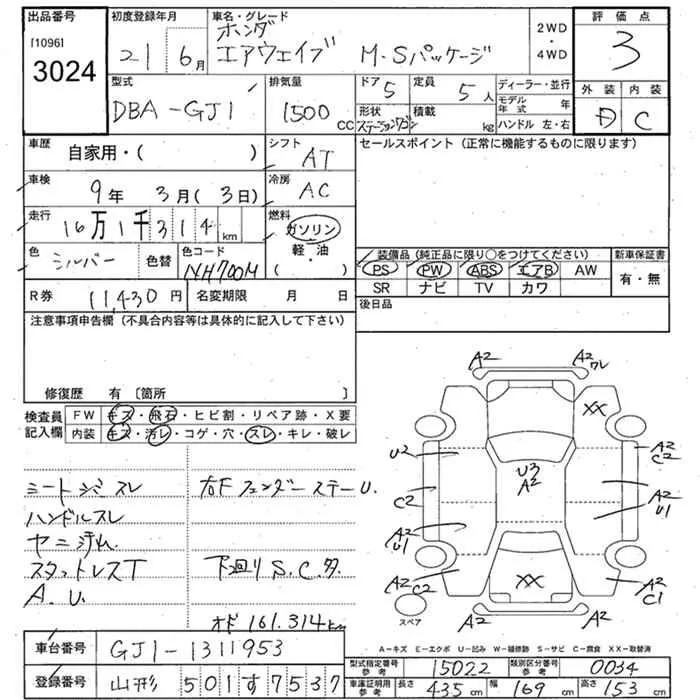 出品番号 初度登録年月 車名・グレード 2WD・4WD 評価点
[1096] 3024 21年 6月 ホンダ エアウェイブ M・Sパッケージ 3
型式 排気量 ドア 5 定員 5人 ディーラー・並行 外装 内装
DBA-GJ1 1500CC 形状 ステーションワゴン 積載 kg モデル年式 年 C
ハンドル 左・右
車歴 シフト セールスポイント (正常に機能するものに限ります)
自家用・( ) AT
車検 冷房
9年 3月( 3日) AC
走行 燃料
16万1千314km ガソリン
色 色替 色コード 軽・油 装備品 (純正品に限り○をつけてください) 新車保証書
シルバー NH700M ( ) PS PW ABS エアB AW 有・無
SR ナビ TV カワ
R券 11,430円 名変期限 月 日 後日品
注意事項申告欄 (不具合内容等は具体的に記入して下さい)
修復歴 有 〔箇所 〕
検査員記入欄 FW キズ・飛石・ヒビ割・リペア跡・X要
内装 キズ・汚レ・コゲ・穴・スレ・キレ・破レ
A2 A2ワレ
XX
U2 U3 A2 A2 C2
C2 A2 U1
A2 U1
A2 C2 XX A2 C1
A2 A2
スペア
シートジミ スレ 右Fフェンダーステー U.
ハンドルスレ
ヤニ汚れ
スタットレスT 下回り S.C.タ.
A.U.
オド 161,314km
A-キズ E-エクボ U-凹み W-補修跡 S-サビ C-腐食 XX-取替済
車台番号 GJ1-1311953
型式指定番号参考 15022 類別区分番号参考 0034
登録番号 山形 501す7537
車庫証明用参考 長さ 435cm 幅 169cm 高さ 153cm